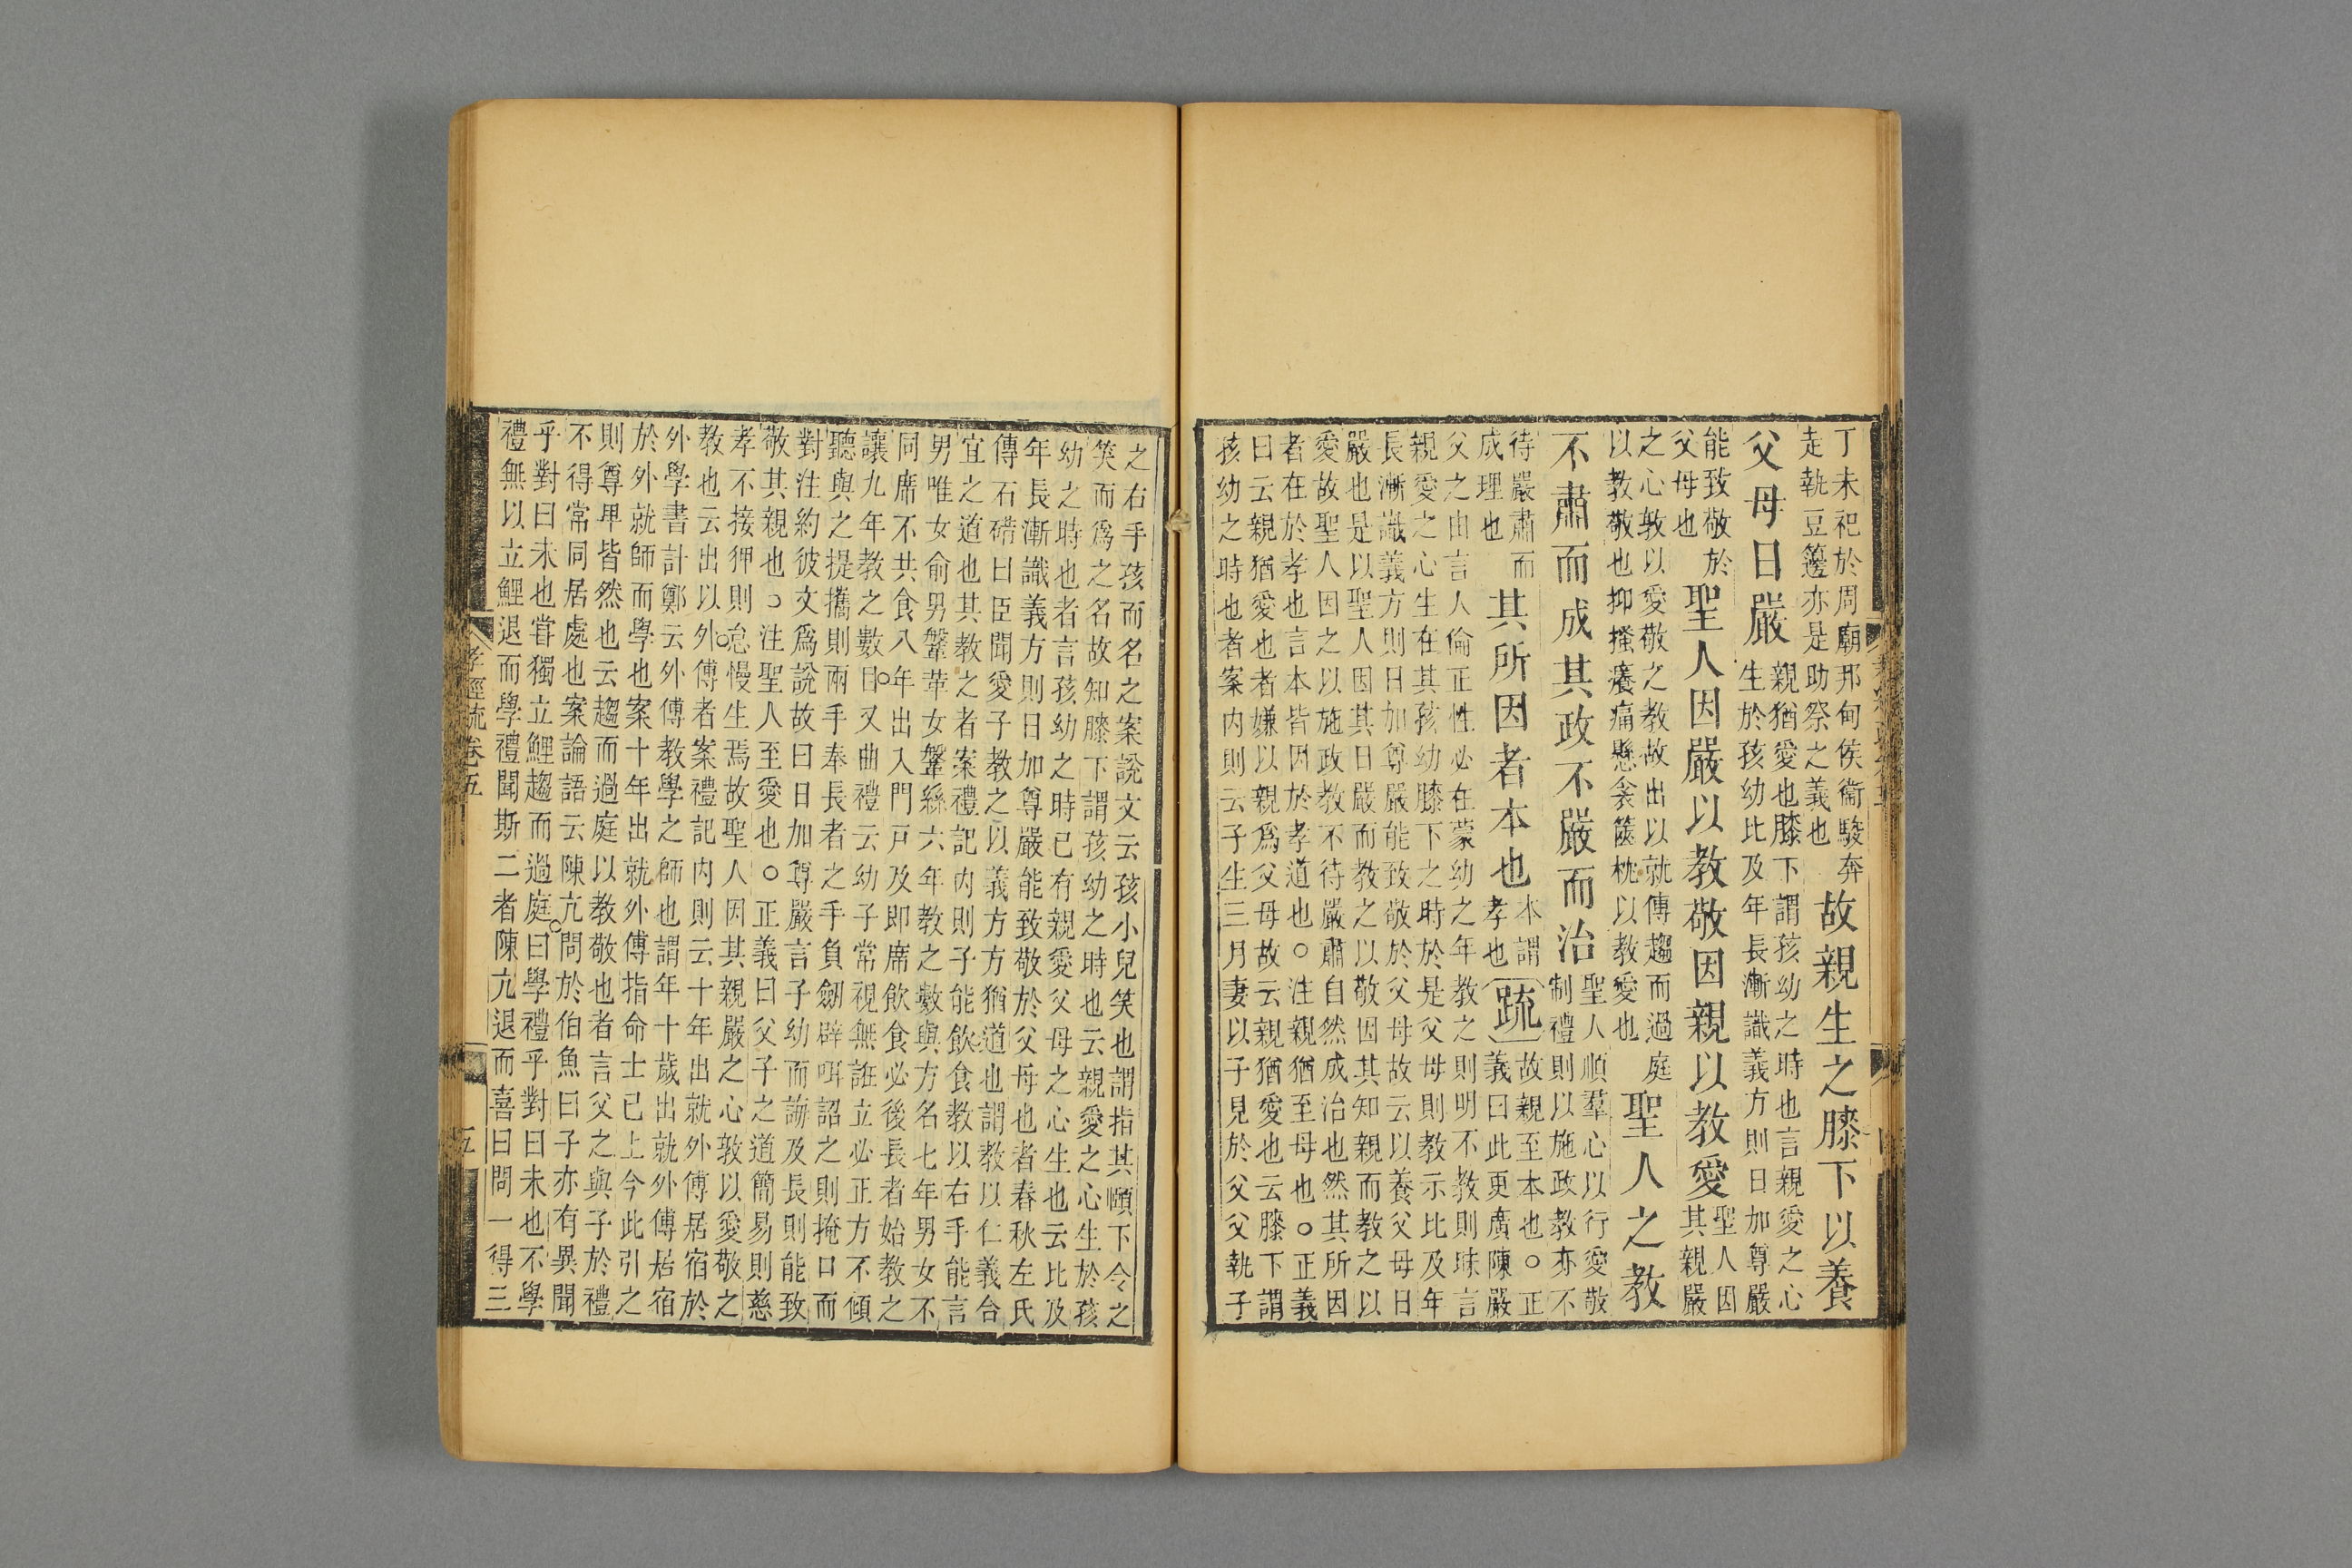 丁未祀於周廟邦甸侯衞駿奔
走執豆籩亦是助祭之義也
故親生之膝下以養
父母日嚴
親猶愛也膝下謂孩幼之時也言親愛之心
生於孩幼比及年長漸識義方則日加尊嚴
能致敬於
父母也
聖人因嚴以教敬因親以教愛
聖人因
其親嚴
之心敦以愛敬之教故出以就傅趨而過庭
以教敬也抑搔癢痛懸衾篋枕以教愛也
聖人之教
不肅而成其政不嚴而治
聖人順羣心以行愛敬
制禮則以施政教亦不
待嚴肅而
成理也
其所因者本也
本謂
孝也
疏
故親至本也○正
義曰此更廣陳嚴
父之由言人倫正性必在蒙幼之年教之則明不教則昧言
親愛之心生在其孩幼膝下之時於是父母則教示比及年
長漸識義方則日加尊嚴能致敬於父母故云以養父母日
嚴也是以聖人因其日嚴而教之以敬因其知親而教之以
愛故聖人因之以施政教不待嚴肅自然成治也然其所因
者在於孝也言本皆因於孝道也○注親猶至母也○正義
曰云親猶愛也者嫌以親爲父母故云親猶愛也云膝下謂
孩幼之時也者案内則云子生三月妻以子見於父父執子
之右手孩而名之案說文云孩小兒笑也謂指其頤下令之
笑而爲之名故知膝下謂孩幼之時也云親愛之心生於孩
幼之時也者言孩幼之時已有親愛父母之心生也云比及
年長漸識義方則日加尊嚴能致敬於父母也者春秋左氏
傳石碏曰臣聞愛子教之以義方方猶道也謂教以仁義合
宜之道也其教之者案禮記内則子能飲食教以右手能言
男唯女俞男鞶革女鞶絲六年教之數與方名七年男女不
同席不共食八年出入門戸及即席飲食必後長者始教之
讓九年教之數日又曲禮云幼子常視無誑立必正方不傾
聽與之提攜則兩手奉長者之手負劒辟咡詔之則掩口而
對注約彼文爲說故曰日加尊嚴言子幼而誨及長則能致
敬其親也○注聖人至愛也○正義曰父子之道簡易則慈
孝不接狎則怠慢生焉故聖人因其親嚴之心敦以愛敬之
教也云出以外傅者案禮記内則云十年出就外傅居宿於
外學書計鄭云外傅教學之師也謂年十歲出就外傅居宿
於外就師而學也案十年出就外傅指命士已上今此引之
則尊卑皆然也云趨而過庭以教敬也者言父之與子於禮
不得常同居處也案論語云陳亢問於伯魚曰子亦有異聞
乎對曰未也嘗獨立鯉趨而過庭曰學禮乎對曰未也不學
禮無以立鯉退而學禮聞斯二者陳亢退而喜曰問一得三
孝經疏卷五
五